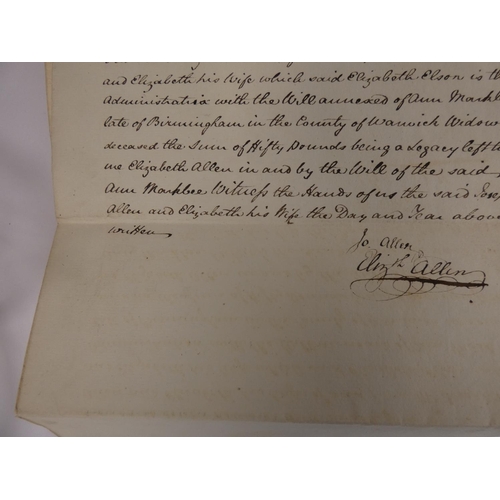 and Elizabeth his Wife which said Elizabeth Elson is th
Administratrix with the Will annexed of Ann Markbee
late of Birmingham in the County of Warwick Widow
deceased the Sum of Fifty Pounds being a Legacy left to
me Elizabeth Allen in and by the Will of the said
Ann Markbee Witness the Hands of us the said Jose
Allen and Elizabeth his Wife the Day and Year above
written
Jo Allen
Elizth Allen